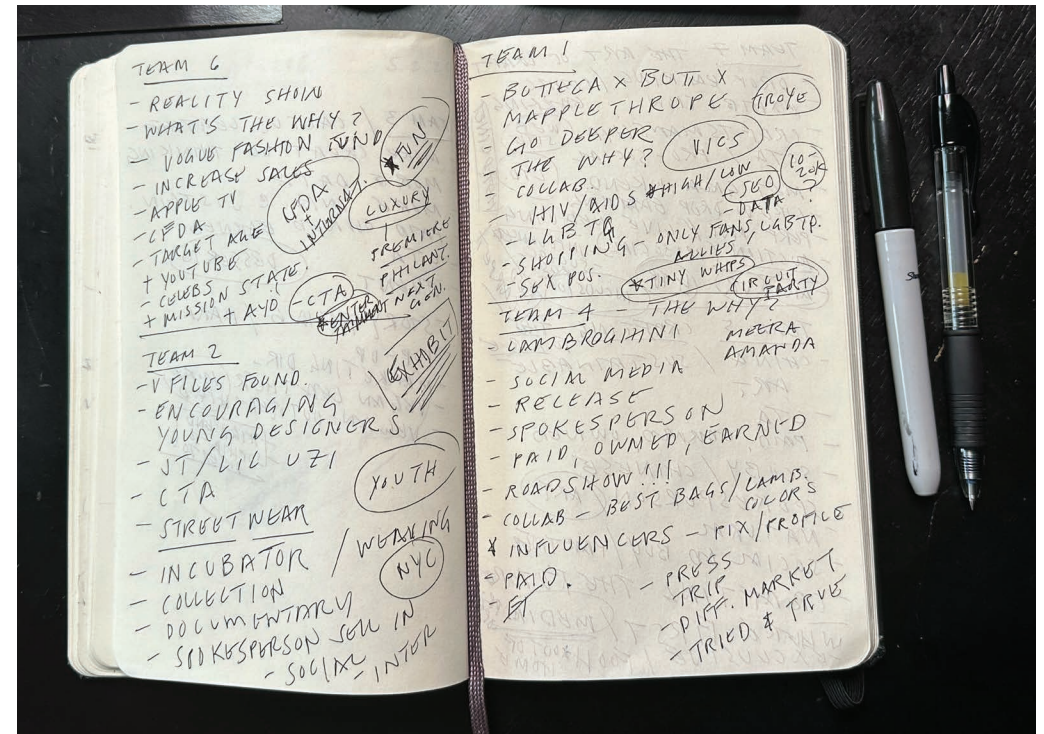 TEAM 6
- REALITY SHOW
- WHAT'S THE WHY?
- VOGUE FASHION FUND
- INCREASE SALES
- APPLE TV
- CFDA
- TARGET AGE
+ YOUTUBE
- CELEBS
+ MISSION STATE.
+ AYO
CFDA
+
INTERNAT.
*FUN
LUXURY
PREMIERE
PHILANT.
NEXT
GEN.
- CTA
*ENTER
TAINMENT
EXHIBIT
TEAM 2
- V FILES FOUND.
- ENCOURAGING
YOUNG DESIGNERS
- JT/LIL UZI
- CTA
- STREET WEAR
- INCUBATOR / WEARING
- COLLECTION
- DOCUMENTARY
- SPOKESPERSON SELL IN
- SOCIAL - INTER
YOUTH
NYC
TEAM 1
- BOTTEGA X BUTT X
MAPPLETHROPE
GO DEEPER
- THE WHY?
- COLLAB. *HIGH/LOW
- HIV/AIDS
- LGBTQ
- SHOPPING - ONLY FANS, LGBTQ.
ALLIES
- SEX POS.
TROYE
VICS
10-
20K
?
- SEO
- DATA
*TINY WHIPS
CIRCUIT
PARTY
TEAM 4 - THE WHY?
LAMBROGHINI
MEERA
AMANDA
- SOCIAL MEDIA
- RELEASE
- SPOKESPERSON
- PAID, OWNED, EARNED
- ROADSHOW!!!
- COLLAB - BEST BAGS/LAMB.
COLORS
* INFLUENCERS - PIX/PROFILE
- PAID.
- PRESS
TRIP
- DIFF. MARKET
- TRIED & TRUE